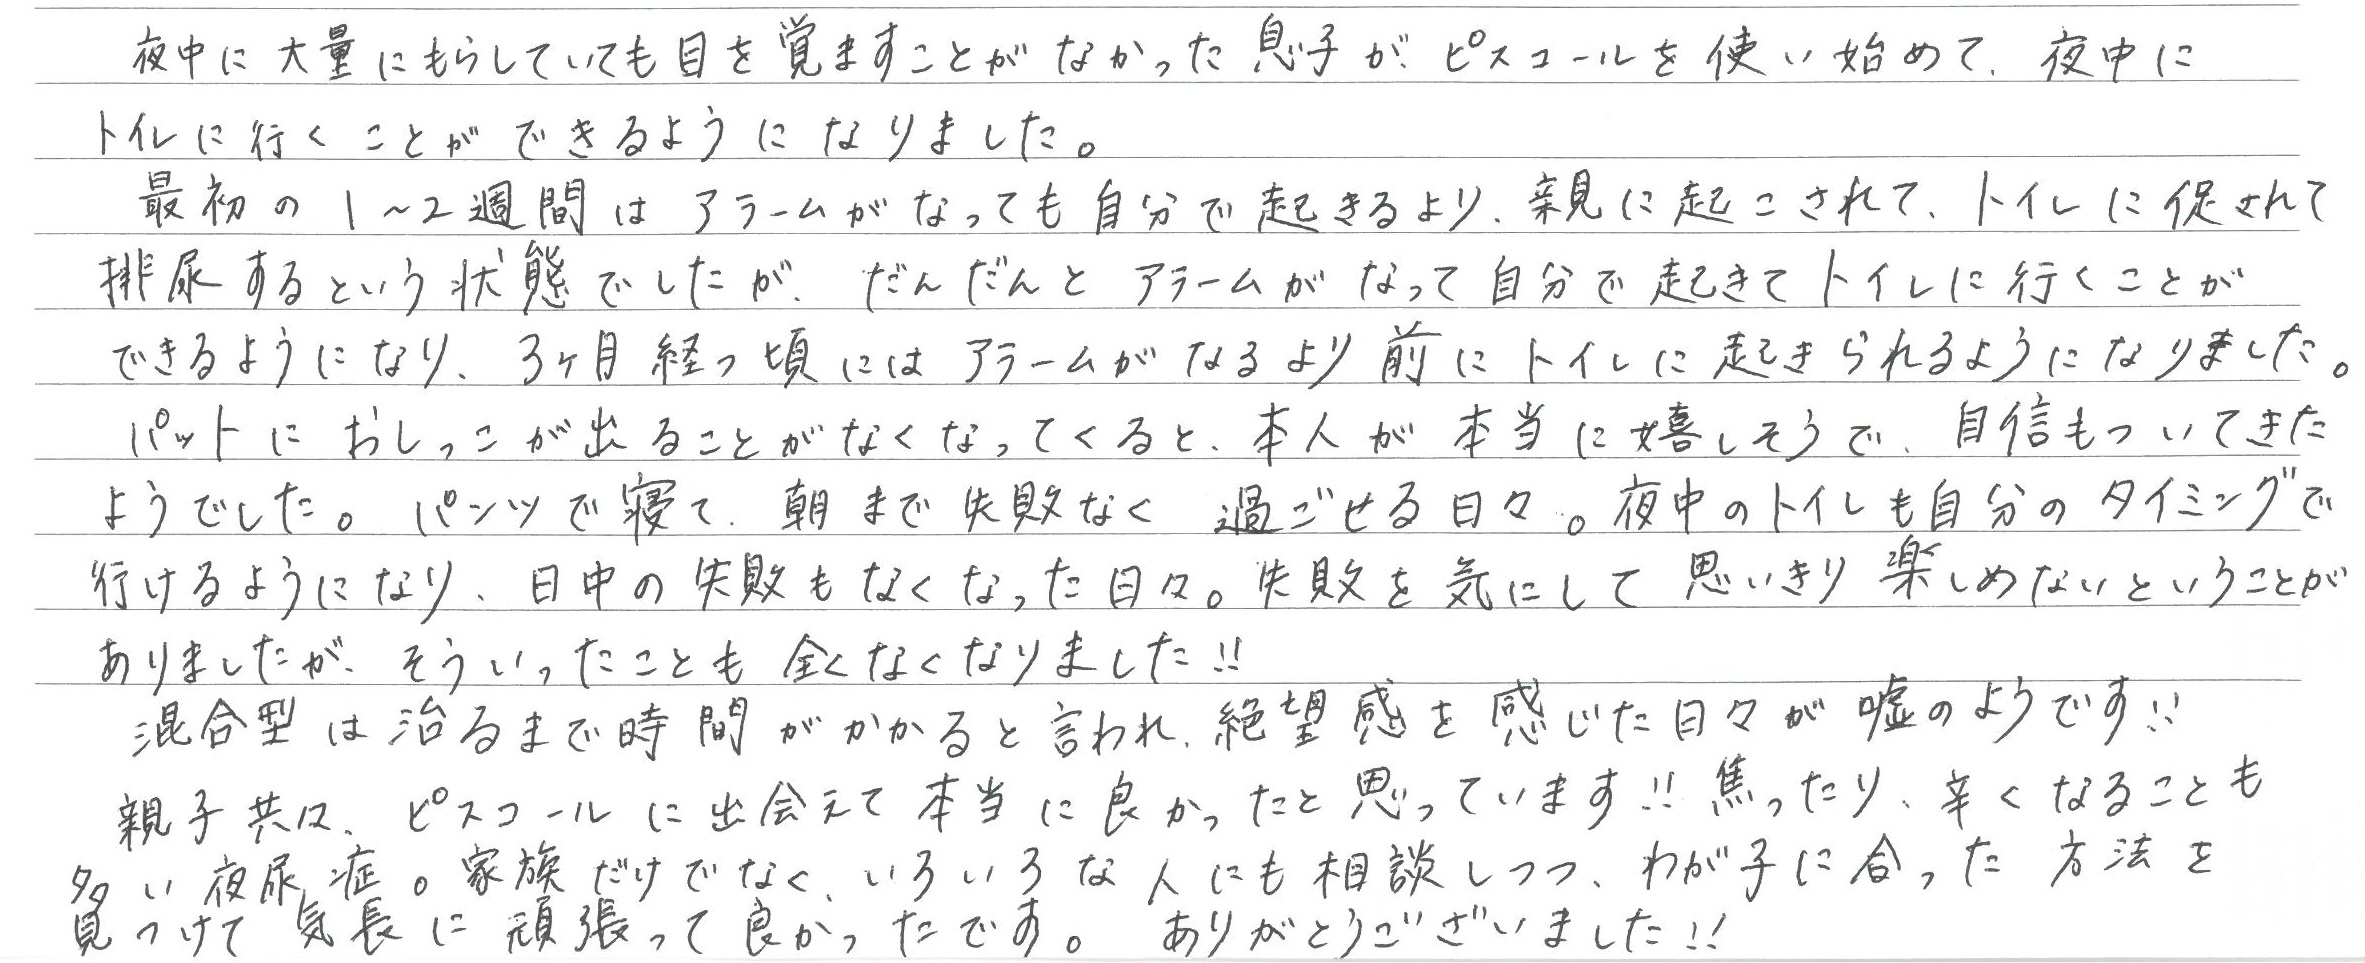 夜中に大量にもらしていても目を覚ますことがなかった息子が、ピスコールを使い始めて、夜中に
トイレに行くことができるようになりました。
最初の1~2週間はアラームがなっても自分で起きるより、親に起こされて、トイレに促されて
排尿するという状態でしたが、だんだんとアラームがなって自分で起きてトイレに行くことが
できるようになり、3ヶ月経つ頃にはアラームがなるより前にトイレに起きられるようになりました。
パットにおしっこが出ることがなくなってくると、本人が本当に嬉しそうで、自信もついてきた
ようでした。パンツで寝て、朝まで失敗なく過ごせる日々。夜中のトイレも自分のタイミングで
行けるようになり、日中の失敗もなくなった日々。失敗を気にして思いきり楽しめないということが
ありましたが、そういったことも全くなくなりました!!
混合型は治るまで時間がかかると言われ、絶望感を感じた日々が嘘のようです!!
親子共々、ピスコールに出会えて本当に良かったと思っています!!焦ったり、辛くなることも
多い夜尿症。家族だけでなく、いろいろな人にも相談しつつ、わが子に合った方法を
見つけて気長に頑張って良かったです。ありがとうございました!!